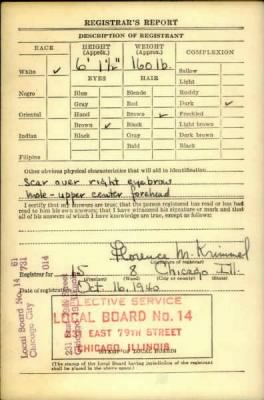 REGISTRAR'S REPORT
DESCRIPTION OF REGISTRANT
RACE HEIGHT (Approx.) WEIGHT (Approx.) COMPLEXION
White ✓ 6' 1½" 160 lb. Sallow
EYES HAIR Light
Negro Blue Blonde Ruddy
Gray Red Dark ✓
Oriental Hazel Brown ✓ Freckled
Brown ✓ Black Light brown
Indian Black Gray Dark brown
Bald Black
Filipino
Other obvious physical characteristics that will aid in identification
Scar over right eyebrow
mole - upper center forehead
I certify that my answers are true; that the person registered has read or has had
read to him his own answers; that I have witnessed his signature or mark and that
all of his answers of which I have knowledge are true, except as follows:
Florence M.
(Signature of registrar)
Registrar for 15 8 Chicago Ill.
Date of registration Oct. 16, 1940
SELECTIVE SERVICE
LOCAL BOARD No. 14
EAST 79TH STREET
CHICAGO, ILLINOIS
(STAMP OF LOCAL BOARD)
(The stamp of the Local Board having jurisdiction of the registrant
shall be placed in the above space.)
Local Board No. 14 61
Chicago City 731
014